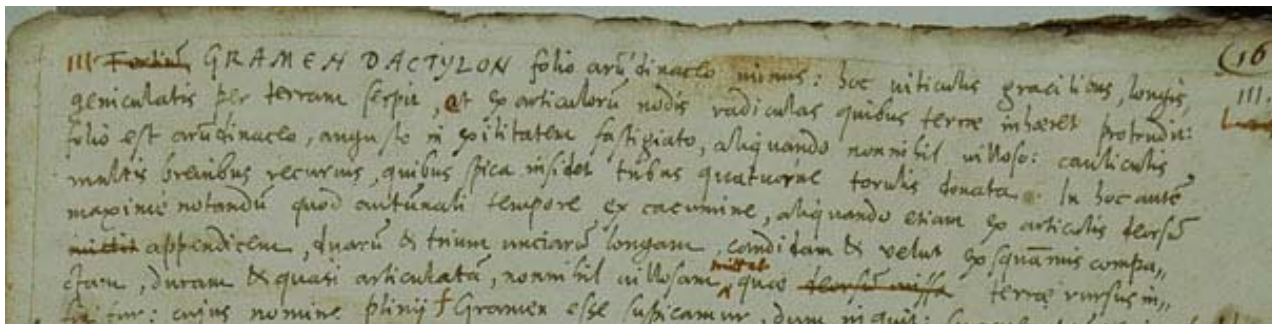 (16
III. Tertiũ GRAMEN DACTYLON folio arũdinaceo minus: hoc viticulis gracilibus, longis,
geniculatis per terram serpit, et ex articulorũ nodis radiculas quibus terræ inhæret protrudit:
III.
folio est arũdinaceo, angusto in exilitatem fastigiato, aliquando nonnihil villoso: cauliculis
multis brevibus recurvis, quibus spica insidet tribus quatuorve torulis donata. In hoc autẽ
maximè notandũ quod autũnali tempore ex cacumine, aliquando etiam ex articulis deorsũ
mittit appendicem, duarũ & trium unciarũ longam, candidam & velut ex squãmis compa,,
ctam, duram & quasi articulatã, nonnihil villosam mittat quæ deorsũ missa terræ rursus in,,
seritur: cujus nomine Plinij † Gramen esse suspicamur, dum inquit: